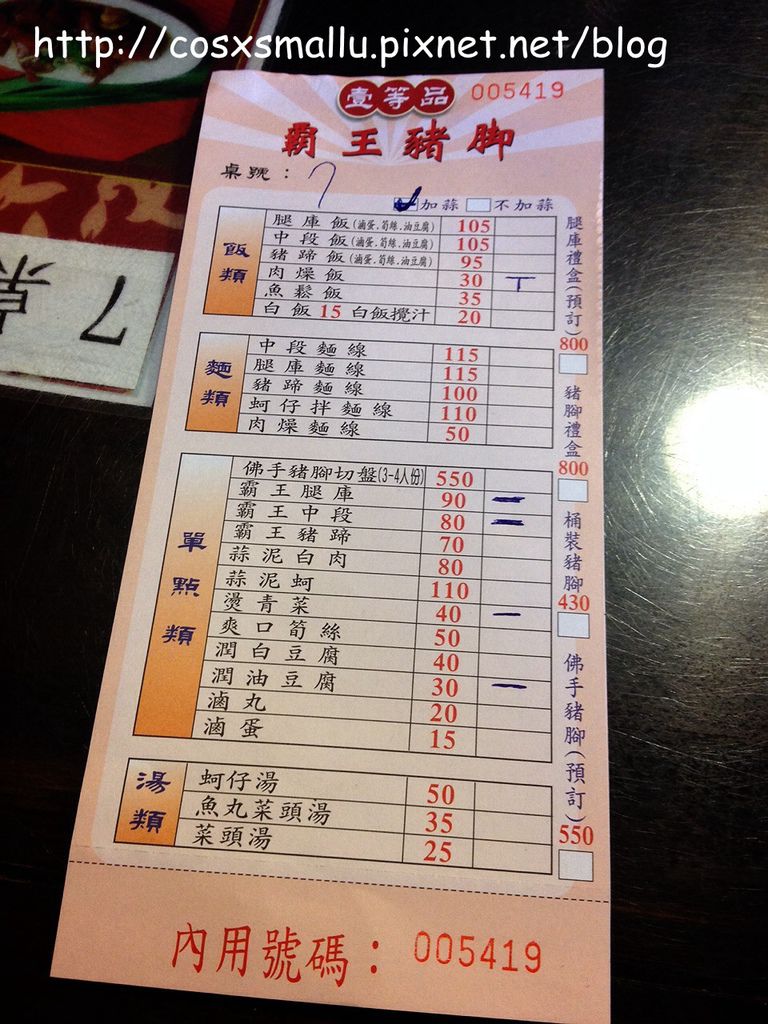 http://cosxsmallu.pixnet.net/blog
壹等品 005419
霸王豬脚
桌號：7
加蒜 不加蒜
飯類
腿庫飯(滷蛋.筍絲.油豆腐) 105
中段飯(滷蛋.筍絲.油豆腐) 105
豬蹄飯(滷蛋.筍絲.油豆腐) 95
肉燥飯 30 丅
魚鬆飯 35
白飯 15 白飯攪汁 20
麵類
中段麵線 115
腿庫麵線 115
豬蹄麵線 100
蚵仔拌麵線 110
肉燥麵線 50
單點類
佛手豬腳切盤(3-4人份) 550
霸王腿庫 90 一
霸王中段 80 一
霸王豬蹄 70
蒜泥白肉 80
蒜泥蚵 110
燙青菜 40 一
爽口筍絲 50
潤白豆腐 40
潤油豆腐 30 一
滷丸 20
滷蛋 15
湯類
蚵仔湯 50
魚丸菜頭湯 35
菜頭湯 25
腿庫禮盒(預訂) 800
豬腳禮盒 800
桶裝豬腳 430
佛手豬腳(預訂) 550
內用號碼：005419
7桌